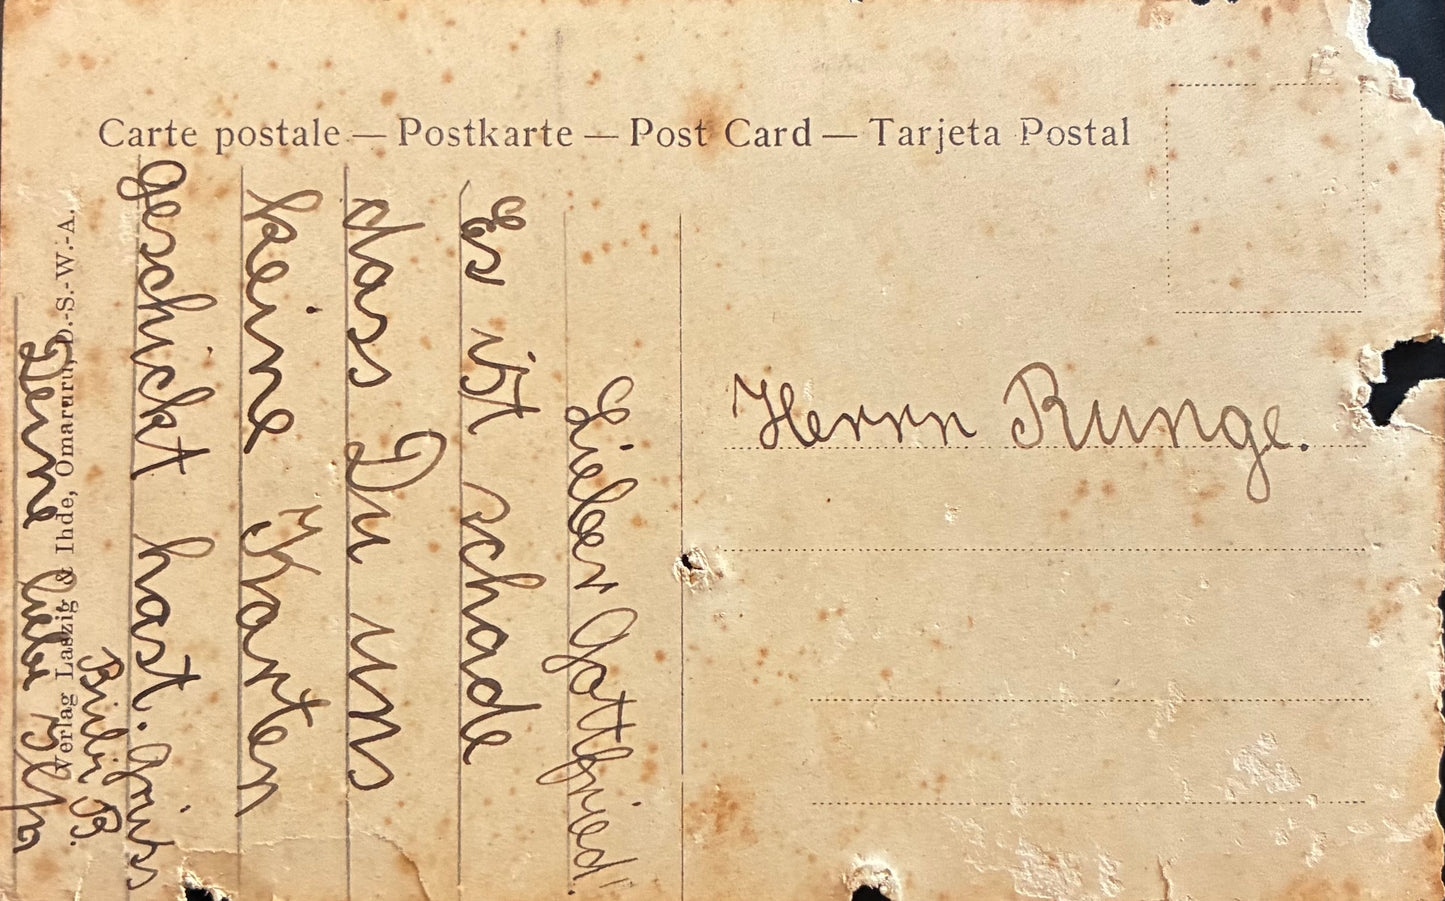 Carte postale — Postkarte — Post Card — Tarjeta Postal
Herrn Runge.
Lieber Gottfried!
Es ist schade
dass Du uns
keine Karten
geschickt hast. Gruss
B.
Deine liebe
Verlag Laszig & Ihde, Omaruru, D.-S.-W.-A.